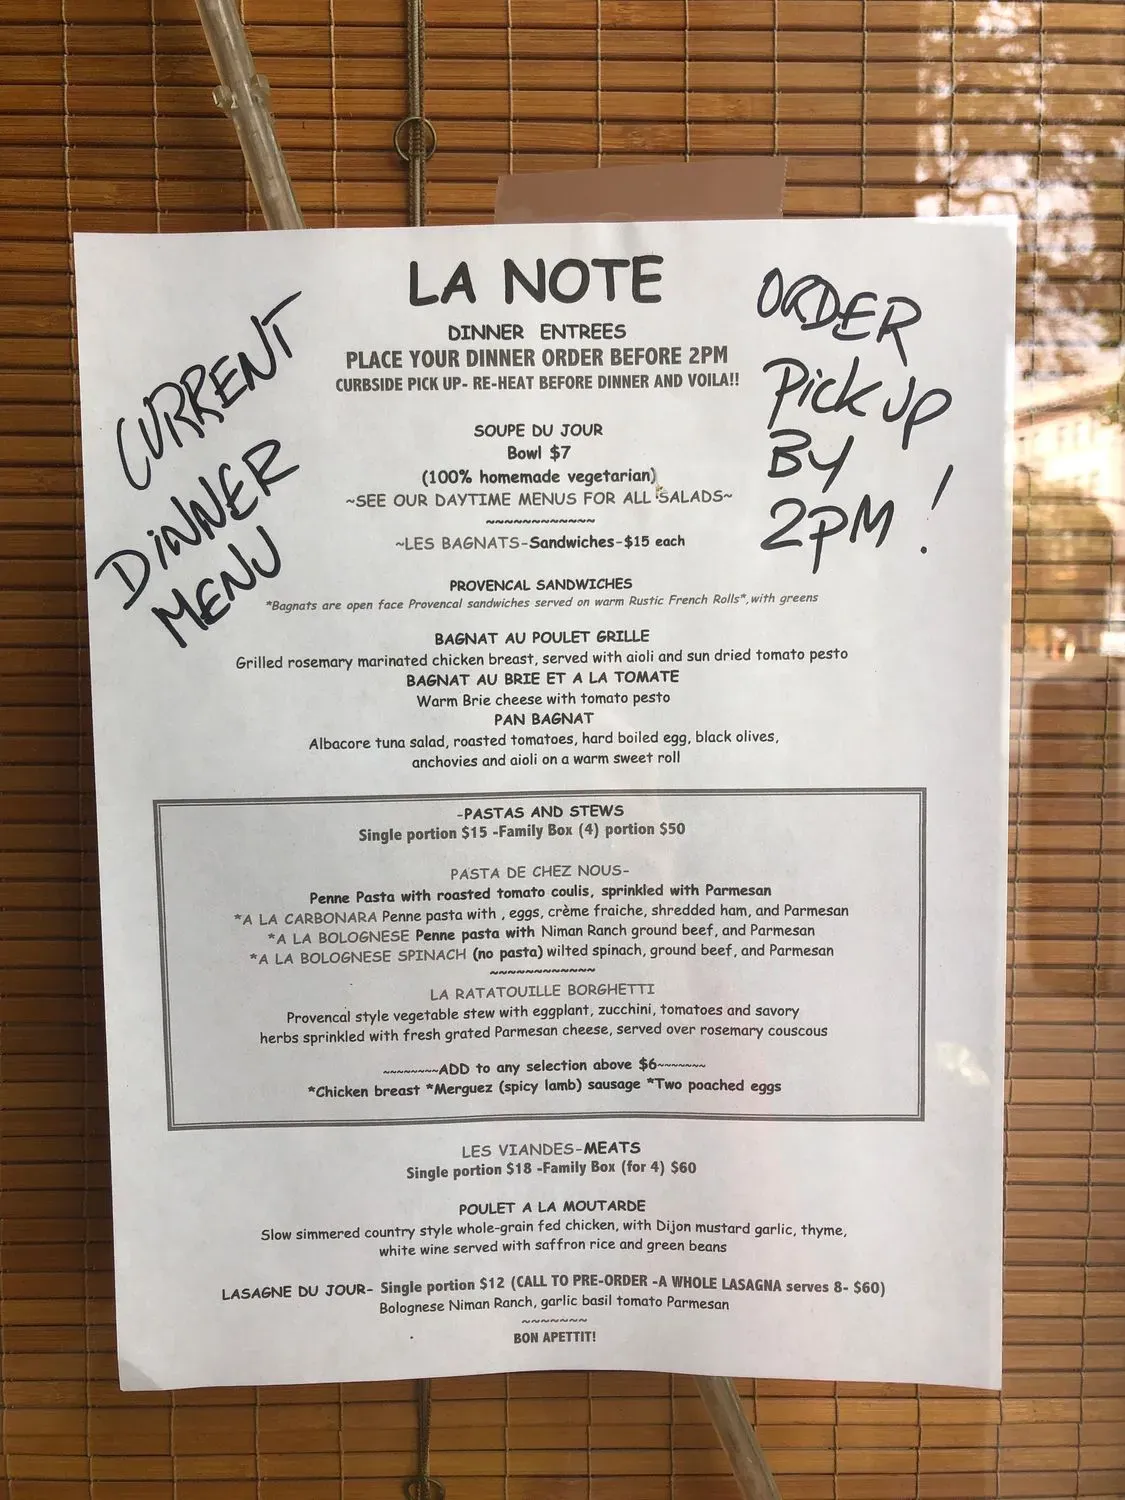 LA NOTE
DINNER ENTREES
PLACE YOUR DINNER ORDER BEFORE 2PM
CURBSIDE PICK UP- RE-HEAT BEFORE DINNER AND VOILA!!
CURRENT
DINNER
MENU
ORDER
Pick up
By
2PM!
SOUPE DU JOUR
Bowl $7
(100% homemade vegetarian)
~SEE OUR DAYTIME MENUS FOR ALL SALADS~
~~~~~~~~~~~~
~LES BAGNATS-Sandwiches-$15 each
PROVENCAL SANDWICHES
*Bagnats are open face Provencal sandwiches served on warm Rustic French Rolls*, with greens
BAGNAT AU POULET GRILLE
Grilled rosemary marinated chicken breast, served with aioli and sun dried tomato pesto
BAGNAT AU BRIE ET A LA TOMATE
Warm Brie cheese with tomato pesto
PAN BAGNAT
Albacore tuna salad, roasted tomatoes, hard boiled egg, black olives,
anchovies and aioli on a warm sweet roll
-PASTAS AND STEWS
Single portion $15 -Family Box (4) portion $50
PASTA DE CHEZ NOUS-
Penne Pasta with roasted tomato coulis, sprinkled with Parmesan
*A LA CARBONARA Penne pasta with , eggs, crème fraiche, shredded ham, and Parmesan
*A LA BOLOGNESE Penne pasta with Niman Ranch ground beef, and Parmesan
*A LA BOLOGNESE SPINACH (no pasta) wilted spinach, ground beef, and Parmesan
~~~~~~~~~~~~
LA RATATOUILLE BORGHETTI
Provencal style vegetable stew with eggplant, zucchini, tomatoes and savory
herbs sprinkled with fresh grated Parmesan cheese, served over rosemary couscous
~~~~~~~~ADD to any selection above $6~~~~~~~
*Chicken breast *Merguez (spicy lamb) sausage *Two poached eggs
LES VIANDES-MEATS
Single portion $18 -Family Box (for 4) $60
POULET A LA MOUTARDE
Slow simmered country style whole-grain fed chicken, with Dijon mustard garlic, thyme,
white wine served with saffron rice and green beans
LASAGNE DU JOUR- Single portion $12 (CALL TO PRE-ORDER -A WHOLE LASAGNA serves 8- $60)
Bolognese Niman Ranch, garlic basil tomato Parmesan
~~~~~~~
BON APETTIT!